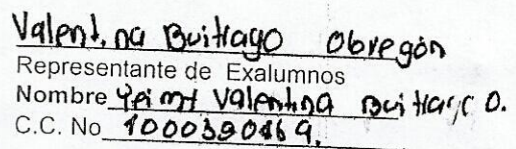 Valentina Buitrago Obregón
Representante de Exalumnos
Nombre Yeimy Valentina Buitrago O.
C.C. No 1000390469.